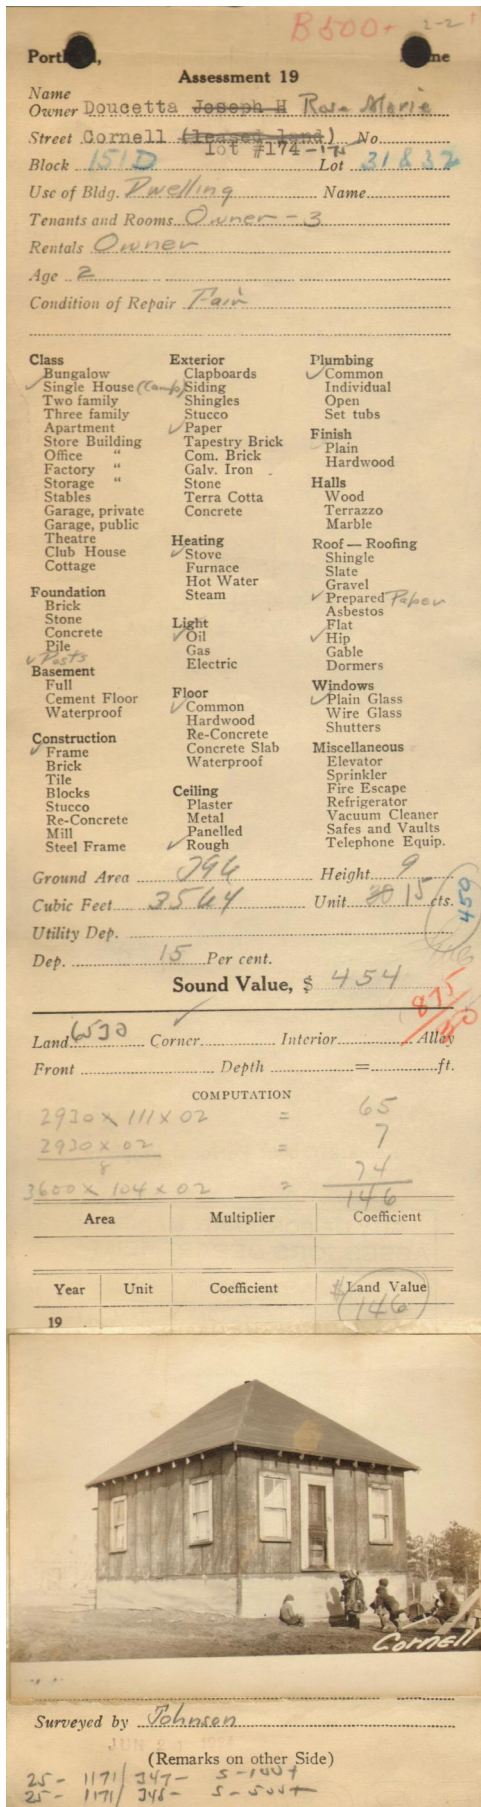 B 500+ 2-2
Portland, Maine
Assessment 19
Name
Owner Doucetta Joseph H Rose Marie
Street Cornell (leased land) No.
lot #174-175
Block 151D Lot 31 & 32
Use of Bldg. Dwelling Name
Tenants and Rooms Owner - 3
Rentals Owner
Age 2
Condition of Repair Fair
Class
Bungalow
✓ Single House (Camp)
Two family
Three family
Apartment
Store Building
Office "
Factory "
Storage "
Stables
Garage, private
Garage, public
Theatre
Club House
Cottage
Foundation
Brick
Stone
Concrete
Pile
✓ Posts
Basement
Full
Cement Floor
Waterproof
Construction
✓ Frame
Brick
Tile
Blocks
Stucco
Re-Concrete
Mill
Steel Frame
Exterior
Clapboards
Siding
Shingles
Stucco
✓ Paper
Tapestry Brick
Com. Brick
Galv. Iron
Stone
Terra Cotta
Concrete
Heating
✓ Stove
Furnace
Hot Water
Steam
Light
✓ Oil
Gas
Electric
Floor
✓ Common
Hardwood
Re-Concrete
Concrete Slab
Waterproof
Ceiling
Plaster
Metal
Panelled
✓ Rough
Plumbing
✓ Common
Individual
Open
Set tubs
Finish
✓ Plain
Hardwood
Halls
Wood
Terrazzo
Marble
Roof — Roofing
Shingle
Slate
Gravel
✓ Prepared Paper
Asbestos
Flat
✓ Hip
Gable
Dormers
Windows
✓ Plain Glass
Wire Glass
Shutters
Miscellaneous
Elevator
Sprinkler
Fire Escape
Refrigerator
Vacuum Cleaner
Safes and Vaults
Telephone Equip.
Ground Area 396 Height 9
Cubic Feet 3564 Unit 15 cts.
450
Utility Dep.
Dep. 15 Per cent.
Sound Value, $ 454
875
Land 6530 Corner ✓ Interior Alley
Front Depth = ft.
COMPUTATION
2930 x 111 x 02 = 65
2930 x 02 = 7
8
3600 x 104 x 02 = 74
146
Area Multiplier Coefficient
Year Unit Coefficient $ Land Value
19 146
Cornell
Surveyed by Johnson
(Remarks on other Side)
25 - 1171/347 - S-100+
25 - 1171/348 - S-500+